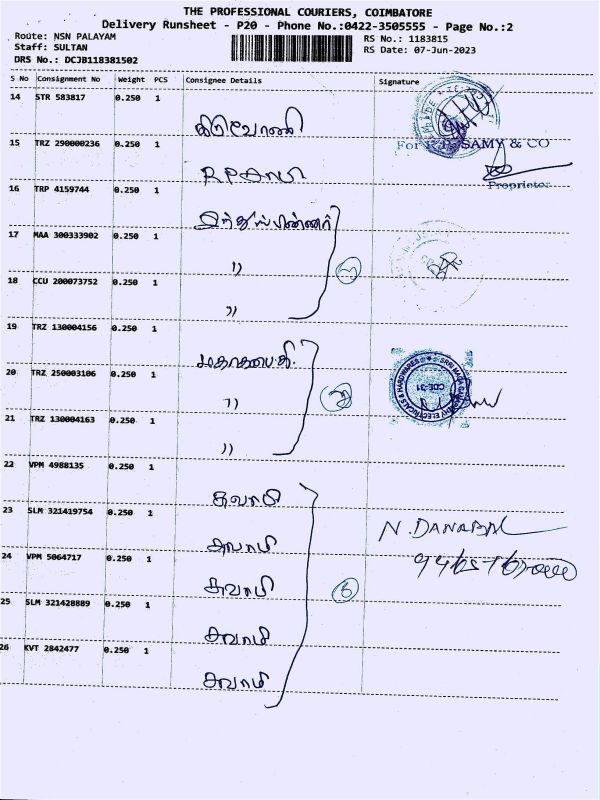 THE PROFESSIONAL COURIERS, COIMBATORE
Delivery Runsheet - P20 - Phone No.:0422-3505555 - Page No.:2
Route: NSN PALAYAM
RS No.: 1183815
Staff: SULTAN
RS Date: 07-Jun-2023
DRS No.: DCJB118381502
S No Consignment No Weight PCS Consignee Details Signature
14 STR 583817 0.250 1
15 TRZ 290000236 0.250 1
For P. R. SAMY & CO
Proprietor
16 TRP 4159744 0.250 1
17 MAA 300333902 0.250 1
"
18 CCU 200073752 0.250 1
"
19 TRZ 130004156 0.250 1
மகாகணபதி
20 TRZ 250003106 0.250 1
"
ELECTRICALS & HARDWARES
CBE-31
21 TRZ 130004163 0.250 1
"
22 VPM 4988135 0.250 1
சுவாமி
23 SLM 321419754 0.250 1
சுவாமி
N. DANABAL
24 VPM 5064717 0.250 1
சுவாமி
25 SLM 321428889 0.250 1
சுவாமி
26 KVT 2842477 0.250 1
சுவாமி